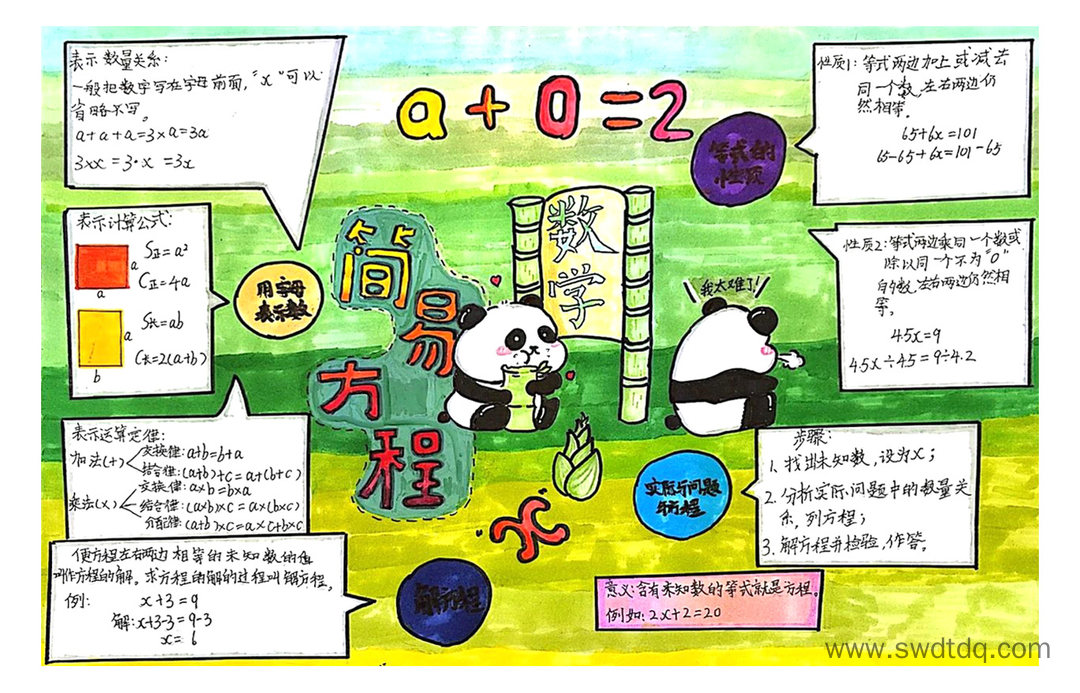 表示数量关系:
一般把数字写在字母前面,"x"可以
省略不写。
a+a+a=3×a=3a
3×x=3·x=3x
a+0=2
等式的
性质
性质1:等式两边加上或减去
同一个数,左右两边仍
然相等。
65+6x=101
65-65+6x=101-65
表示计算公式:
a
a
S正=a²
C正=4a
a
b
S长=ab
C长=2(a+b)
用字母
表示数
简易方程
数学
我太难了!
性质2:等式两边乘同一个数或
除以同一个不为"0"
的数,左右两边仍然相
等。
4.5x=9
4.5x÷4.5=9÷4.2
表示运算定律:
加法(+)
交换律:a+b=b+a
结合律:(a+b)+c=a+(b+c)
乘法(×)
交换律:a×b=b×a
结合律:(a×b)×c=a×(b×c)
分配律:(a+b)×c=a×c+b×c
x
实际问题
与方程
步骤:
1.找出未知数,设为x;
2.分析实际问题中的数量关
系,列方程;
3.解方程并检验,作答。
使方程左右两边相等的未知数的值
叫作方程的解。求方程的解的过程叫解方程。
例:
x+3=9
解:x+3-3=9-3
x=6
解方程
意义:含有未知数的等式就是方程。
例如:2x+2=20
www.swdtdq.com